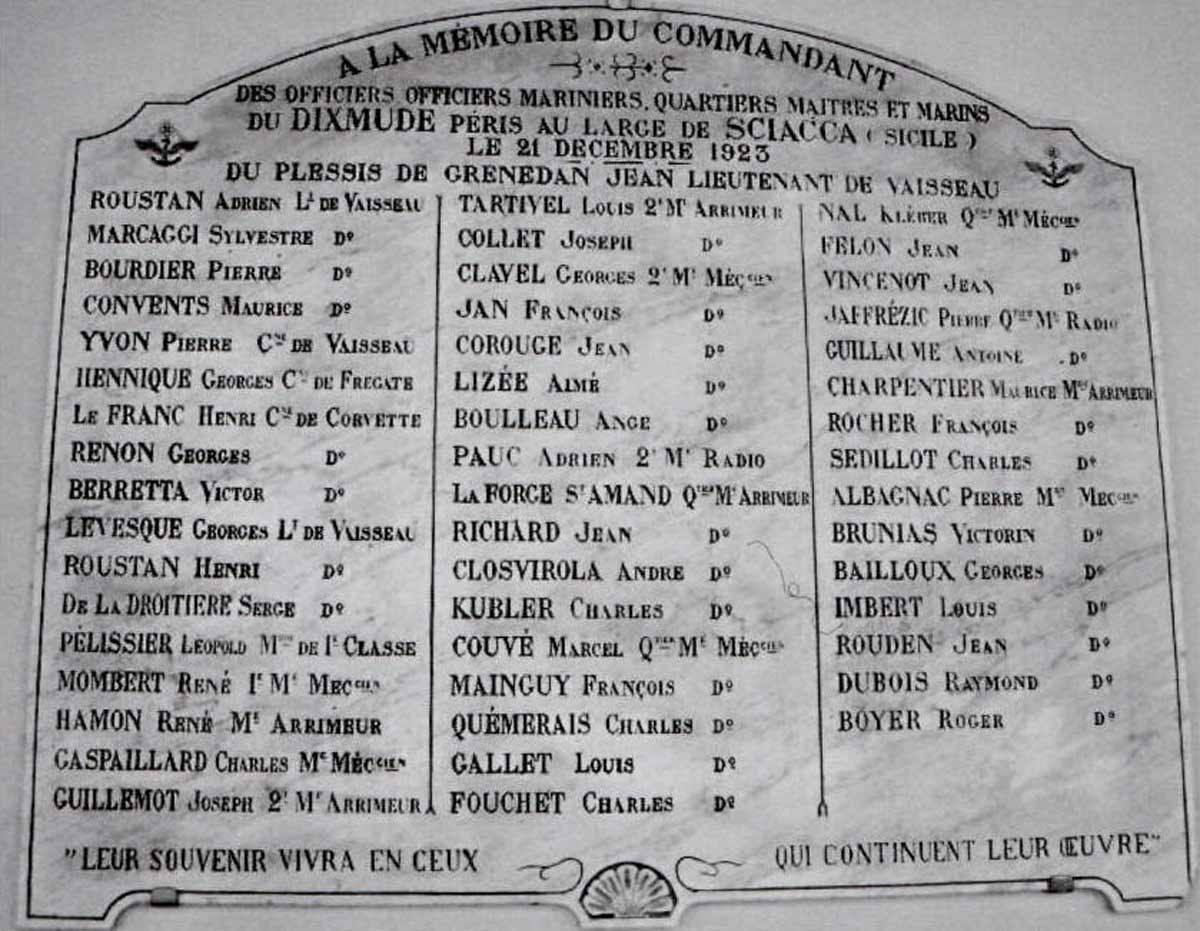 A LA MÉMOIRE DU COMMANDANT
DES OFFICIERS OFFICIERS MARINIERS, QUARTIERS MAITRES ET MARINS
DU DIXMUDE PÉRIS AU LARGE DE SCIACCA (SICILE)
LE 21 DECEMBRE 1923
DU PLESSIS DE GRENEDAN JEAN LIEUTENANT DE VAISSEAU
ROUSTAN ADRIEN Lt DE VAISSEAU
MARCAGGI SYLVESTRE Do
BOURDIER PIERRE Do
CONVENTS MAURICE Do
YVON PIERRE Cne DE VAISSEAU
HENNIQUE GEORGES Cne DE FREGATE
LE FRANC HENRI Cne DE CORVETTE
RENON GEORGES Do
BERRETTA VICTOR Do
LEVESQUE GEORGES Lt DE VAISSEAU
ROUSTAN HENRI Do
DE LA DROITIERE SERGE Do
PÉLISSIER LÉOPOLD DE 1e CLASSE
MOMBERT RENÉ 1e Me MECcien
HAMON RENÉ Me ARRIMEUR
GASPAILLARD CHARLES Me MÈCcien
GUILLEMOT JOSEPH 2e Me ARRIMEUR
TARTIVEL LOUIS 2e Me ARRIMEUR
COLLET JOSEPH Do
CLAVEL GEORGES 2e Me MÈCcien
JAN FRANÇOIS Do
COROUGE JEAN Do
LIZÉE AIMÉ Do
BOULLEAU ANGE Do
PAUC ADRIEN 2e Me RADIO
LA FORGE St AMAND Qtier Me ARRIMEUR
RICHARD JEAN Do
CLOSVIROLA ANDRE Do
KUBLER CHARLES Do
COUVÉ MARCEL Qtier Me MÈCcien
MAINGUY FRANÇOIS Do
QUÉMERAIS CHARLES Do
GALLET LOUIS Do
FOUCHET CHARLES Do
NAL KLÉBER Qtier Me MÈCcien
FELON JEAN Do
VINCENOT JEAN Do
JAFFRÉZIC PIERRE Qtier Me RADIO
GUILLAUME ANTOINE Do
CHARPENTIER MAURICE Mot ARRIMEUR
ROCHER FRANÇOIS Do
SEDILLOT CHARLES Do
ALBAGNAC PIERRE Mot MECcien
BRUNIAS VICTORIN Do
BAILLOUX GEORGES Do
IMBERT LOUIS Do
ROUDEN JEAN Do
DUBOIS RAYMOND Do
BOYER ROGER Do
"LEUR SOUVENIR VIVRA EN CEUX QUI CONTINUENT LEUR ŒUVRE"